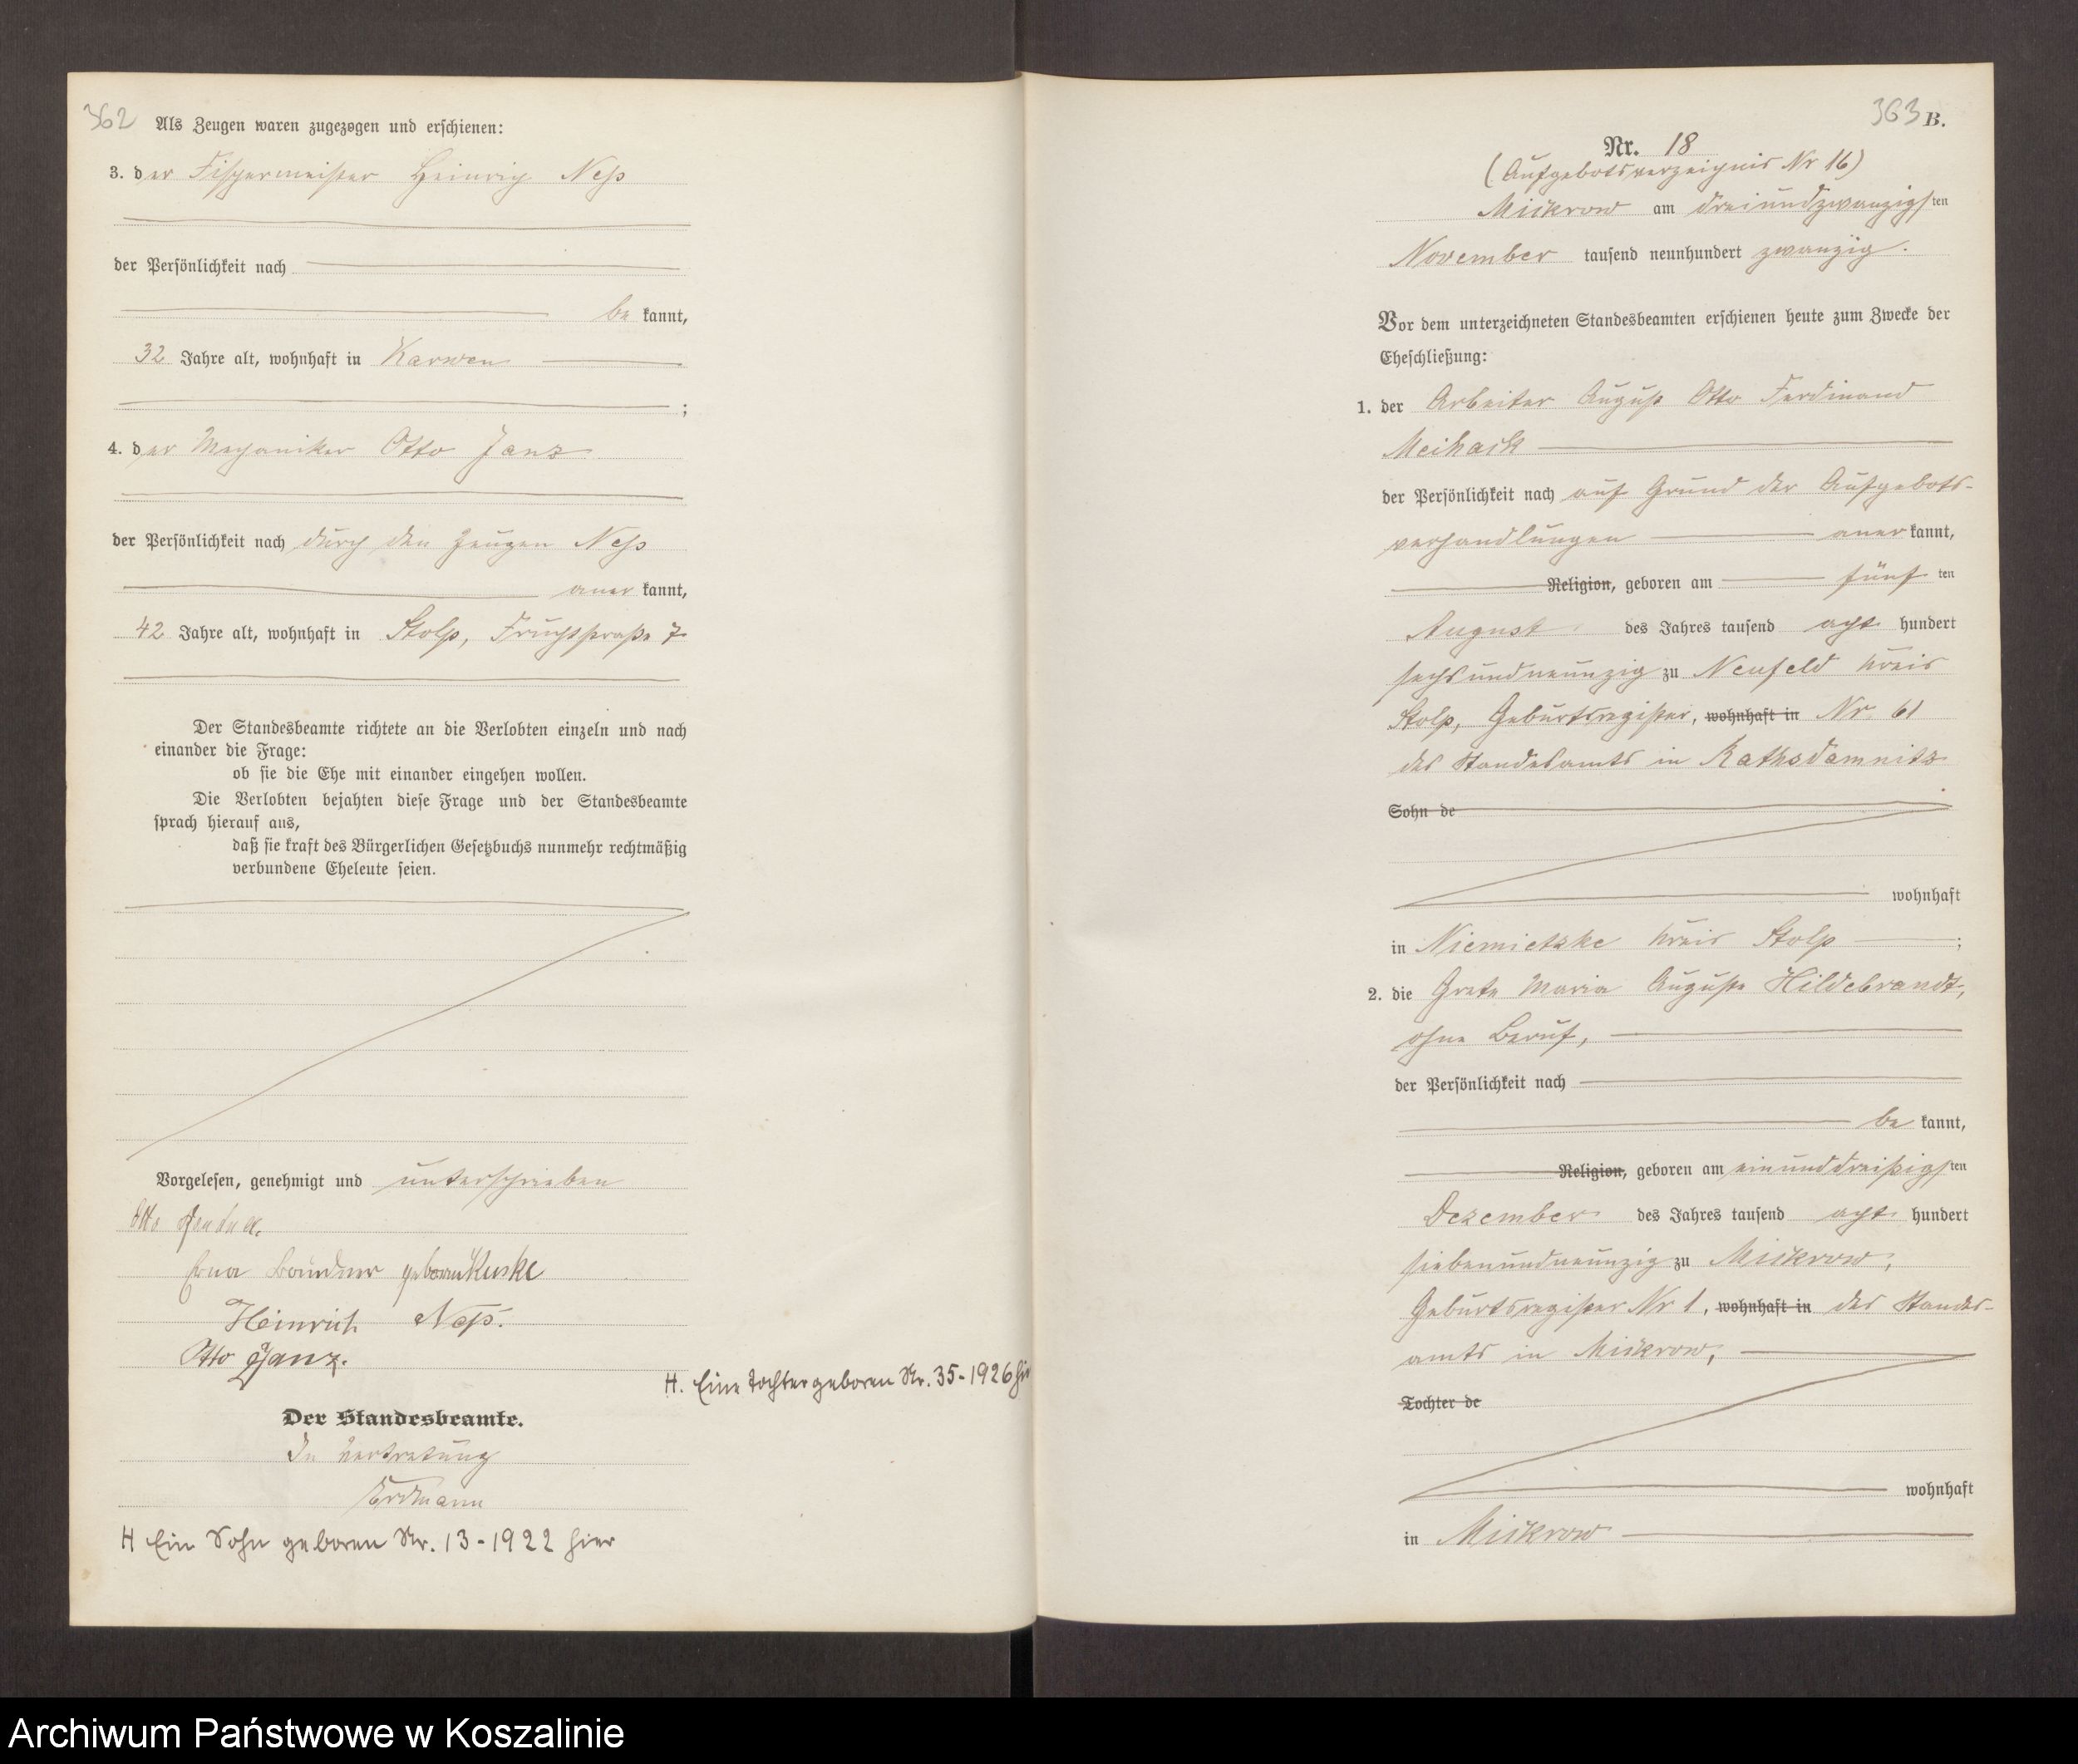 362
Als Zeugen waren zugezogen und erschienen:
3. der Fischermeister Heinrich Neß
der Persönlichkeit nach
be kannt,
32 Jahre alt, wohnhaft in Karwen
;
4. der Mechaniker Otto Janz
der Persönlichkeit nach durch den Zeugen Neß
aner kannt,
42 Jahre alt, wohnhaft in Stolp, Fruchtstraße 7
Der Standesbeamte richtete an die Verlobten einzeln und nach
einander die Frage:
ob sie die Ehe mit einander eingehen wollen.
Die Verlobten bejahten diese Frage und der Standesbeamte
sprach hierauf aus,
daß sie kraft des Bürgerlichen Gesetzbuchs nunmehr rechtmäßig
verbundene Eheleute seien.
Vorgelesen, genehmigt und unterschrieben
Otto
Erna geboren Kuske
Heinrich Neß.
Otto Janz.
H. Eine Tochter geboren Nr. 35-1926 hier
Der Standesbeamte.
In Vertretung
Erdmann
H Ein Sohn geboren Nr. 13-1922 hier
363 B.
Nr. 18
(Aufgebotsverzeichnis Nr 16)
Mickrow am dreiundzwanzigsten
November tausend neunhundert zwanzig.
Vor dem unterzeichneten Standesbeamten erschienen heute zum Zwecke der
Eheschließung:
1. der Arbeiter August Otto Ferdinand
Meihack
der Persönlichkeit nach auf Grund der Aufgebots-
verhandlungen aner kannt,
Religion, geboren am fünf ten
August des Jahres tausend acht hundert
sechsundneunzig zu Neufeld Kreis
Stolp, Geburtsregister, wohnhaft in Nr. 61
des Standesamts in Rathsdamnitz
Sohn de
wohnhaft
in Niemietzke Kreis Stolp ;
2. die Grete Maria Auguste Hildebrandt,
ohne Beruf,
der Persönlichkeit nach
be kannt,
Religion, geboren am einunddreißigsten
Dezember des Jahres tausend acht hundert
siebenundneunzig zu Mickrow,
Geburtsregister Nr 1, wohnhaft in des Standes-
amts in Mickrow,
Tochter de
wohnhaft
in Mickrow
Archiwum Państwowe w Koszalinie